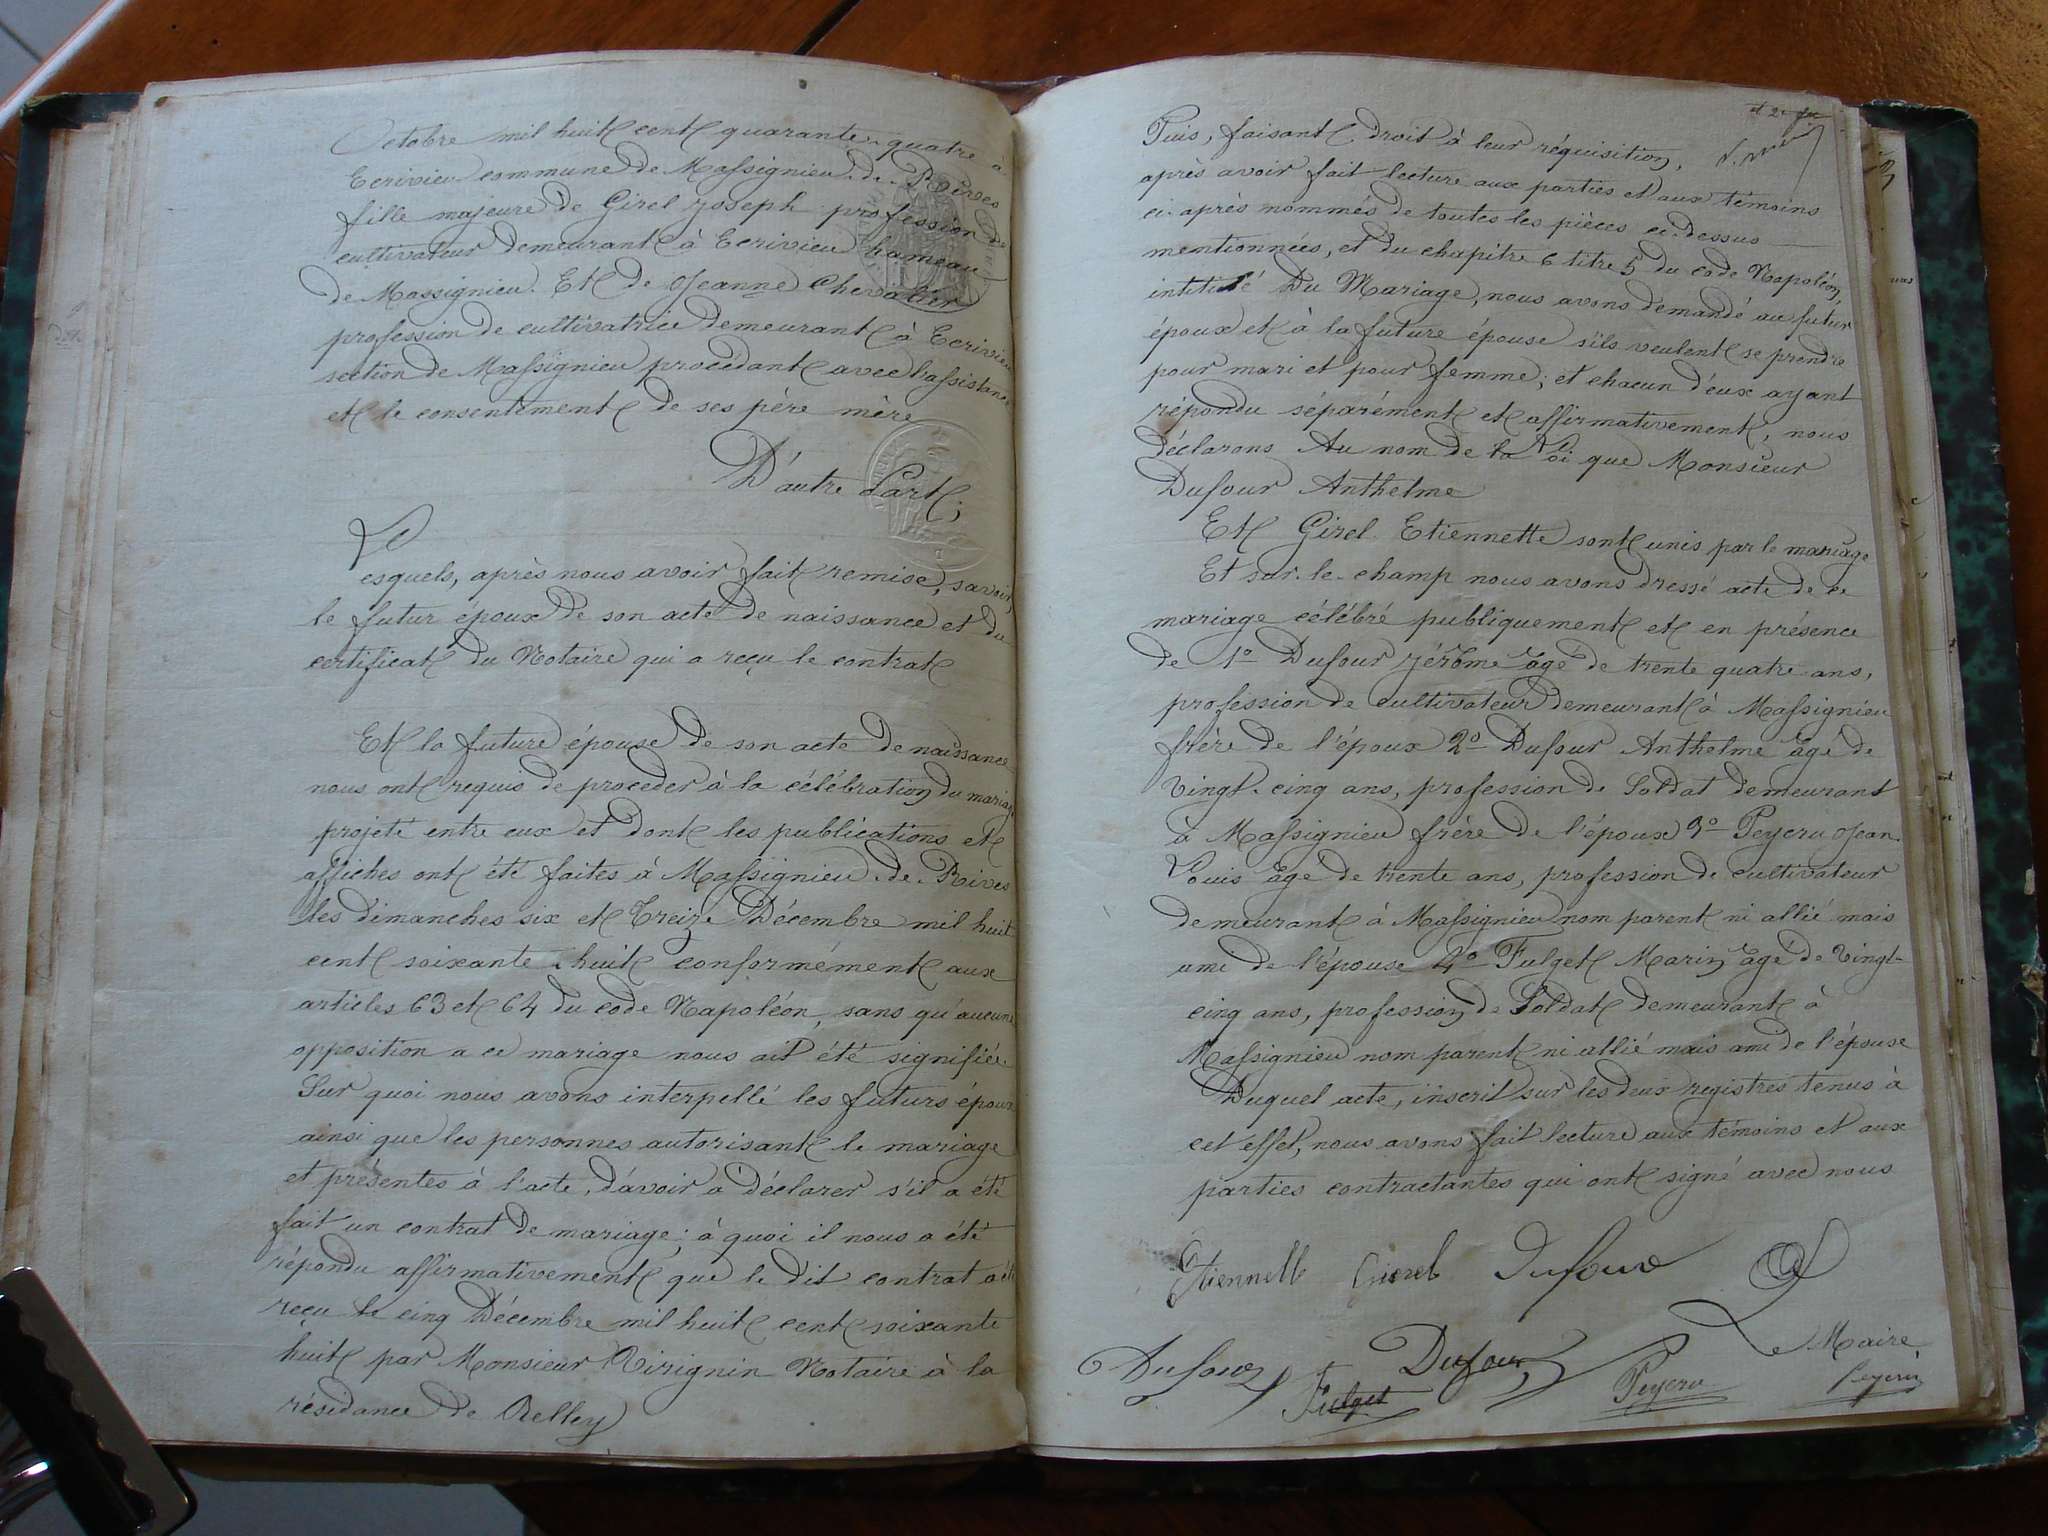 Octobre mil huit cent quarante quatre à
Ecrivieu commune de Massignieu-de-Rives
fille majeure de Girel Joseph profession de
cultivateur demeurant à Ecrivieu hameau
de Massignieu. Et de Jeanne Chevalier
profession de cultivatrice demeurant à Ecrivieu
section de Massignieu procédant avec l'assistance
et le consentement de ses père mère
D'autre Part;
Lesquels, après nous avoir fait remise, savoir,
le futur époux de son acte de naissance et du
certificat du Notaire qui a reçu le contrat
Et la future épouse de son acte de naissance
nous ont requis de proceder à la célébration du mariage
projeté entre eux et dont les publications et
affiches ont été faites à Massignieu-de-Rives
les dimanches six et treize Décembre mil huit
cent soixante huit conformément aux
articles 63 et 64 du code Napoléon, sans qu'aucune
opposition a ce mariage nous ait été signifiée.
Sur quoi nous avons interpellé les futurs époux
ainsi que les personnes autorisant le mariage
et présentes à l'acte, d'avoir à déclarer s'il a été
fait un contrat de mariage; à quoi il nous a été
répondu affirmativement que le dit contrat a été
reçu le cinq Décembre mil huit cent soixante
huit par Monsieur Virignin Notaire à la
résidance de Belley
et 2e
Puis, faisant droit à leur réquisition,
après avoir fait lecture aux parties et aux témoins
ci-après nommés de toutes les pièces ci-dessus
mentionnées, et du chapitre 6 titre 5 du code Napoléon,
intitulé Du Mariage, nous avons demandé au futur
époux et à la future épouse s'ils veulent se prendre
pour mari et pour femme; et chacun d'eux ayant
répondu séparément et affirmativement, nous
déclarons Au nom de la Loi que Monsieur
Dufour Anthelme
Et Girel Etiennette sont unis par le mariage
Et sur-le-champ nous avons dressé acte de ce
mariage célébré publiquement et en présence
de 1o Dufour Jérôme âgé de trente quatre ans,
profession de cultivateur demeurant à Massignieu
frère de l'époux 2o Dufour Anthelme âgé de
Vingt-cinq ans, profession de Soldat demeurant
à Massignieu frère de l'époux 3o Peycru Jean
Louis âgé de trente ans, profession de cultivateur
demeurant à Massignieu nom parent ni allié mais
ami de l'épouse 4o Fulget Marin âgé de Vingt-
cinq ans, profession de Soldat demeurant à
Massignieu nom parent ni allié mais ami de l'épouse
Duquel acte, inscrit sur les deux registres tenus à
cet effet, nous avons fait lecture aux témoins et aux
parties contractantes qui ont signé avec nous
Etiennette Girel Dufour
Le Maire
Dufour Fulget Dufour Peycru Peycru